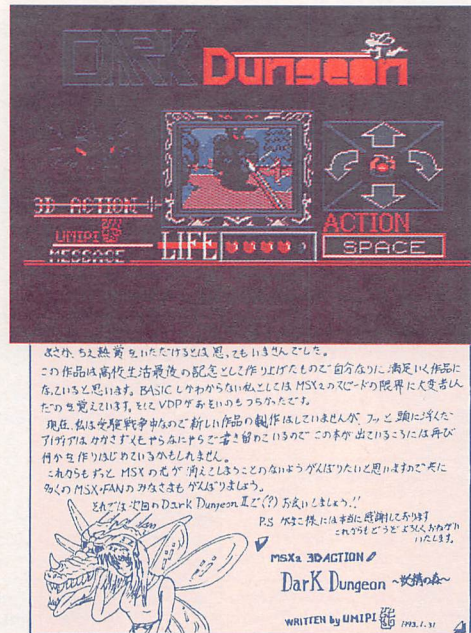 DARK Dungeon
3D ACTION
UMIPI
MESSAGE
LIFE
ACTION
SPACE
まさか、ちえ熱賞をいただけるとは思ってもいませんでした。
この作品は高校生活最後の記念として作り上げたもので自分なりに満足いく作品に
なっていると思います。BASICしかわからない私としてはMSX2のスピードの限界に大変苦しん
だのを覚えています。そしてVDPがおそいのもつらかったです。
現在、私は受験戦争中なので新しい作品の製作はしていませんが、フッと頭に浮んだ
アイデアはかかさずくそやらなにやらで書き留めているのでこの本が出ているころには再び
何かを作りはじめているかもしれません。
これからもずっとMSXの光が消えてしまうことのないようがんばりたいと思いますので共に
多くのMSX・FANのみなさまもがんばりましょう。
それでは次回のDark Dungeon IIで(?)お会いしましょう!!
P.S 様には本当に感謝しております
これからもどうぞよろしくおねがい
いたします。
MSX2 3DACTION
DarK Dungeon ～妖精の森～
WRITTEN by UMIPI 1993.1.31